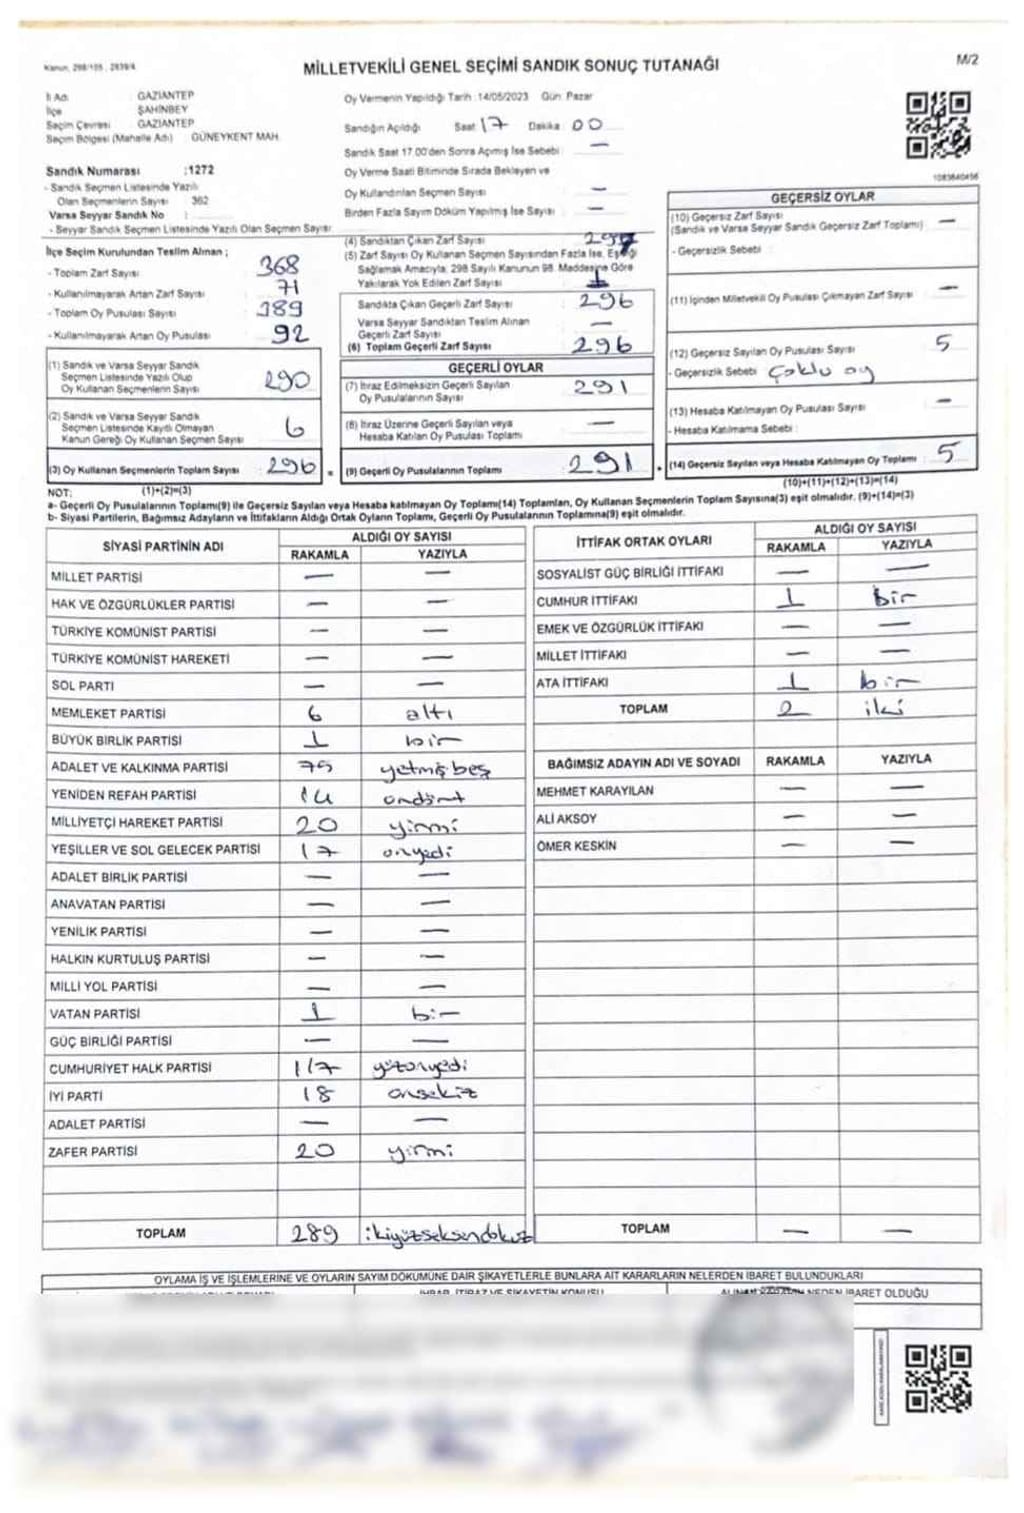 Kanun, 298/105, 2839/4
MİLLETVEKİLİ GENEL SEÇİMİ SANDIK SONUÇ TUTANAĞI
M/2
İl Adı : GAZİANTEP
İlçe ŞAHİNBEY
Seçim Çevresi : GAZİANTEP
Seçim Bölgesi (Mahalle Adı) : GÜNEYKENT MAH.
Oy Vermenin Yapıldığı Tarih :14/05/2023 Gün: Pazar
Sandığın Açıldığı Saat 17 Dakika 00
Sandık Saat 17.00'den Sonra Açılmış İse Sebebi : —
Oy Verme Saati Bitiminde Sırada Bekleyen ve
Oy Kullandırılan Seçmen Sayısı —
Birden Fazla Sayım Döküm Yapılmış İse Sayısı —
Sandık Numarası :1272
- Sandık Seçmen Listesinde Yazılı
Olan Seçmenlerin Sayısı 362
Varsa Seyyar Sandık No :
- Seyyar Sandık Seçmen Listesinde Yazılı Olan Seçmen Sayısı:
İlçe Seçim Kurulundan Teslim Alınan ;
- Toplam Zarf Sayısı : 368
- Kullanılmayarak Artan Zarf Sayısı : 71
- Toplam Oy Pusulası Sayısı : 389
- Kullanılmayarak Artan Oy Pusulası : 92
(1) Sandık ve Varsa Seyyar Sandık
Seçmen Listesinde Yazılı Olup
Oy Kullanan Seçmenlerin Sayısı : 290
(2) Sandık ve Varsa Seyyar Sandık
Seçmen Listesinde Kayıtlı Olmayan
Kanun Gereği Oy Kullanan Seçmen Sayısı : 6
(3) Oy Kullanan Seçmenlerin Toplam Sayısı : 296
(1)+(2)=(3)
(4) Sandıktan Çıkan Zarf Sayısı 297
(5) Zarf Sayısı Oy Kullanan Seçmen Sayısından Fazla İse, Eşitliği
Sağlamak Amacıyla, 298 Sayılı Kanunun 98. Maddesine Göre
Yakılarak Yok Edilen Zarf Sayısı 1
Sandıkta Çıkan Geçerli Zarf Sayısı : 296
Varsa Seyyar Sandıktan Teslim Alınan
Geçerli Zarf Sayısı —
(6) Toplam Geçerli Zarf Sayısı : 296
GEÇERLİ OYLAR
(7) İtiraz Edilmeksizin Geçerli Sayılan
Oy Pusulalarının Sayısı : 291
(8) İtiraz Üzerine Geçerli Sayılan veya
Hesaba Katılan Oy Pusulası Toplamı : —
(9) Geçerli Oy Pusulalarının Toplamı : 291
1083640456
GEÇERSİZ OYLAR
(10) Geçersiz Zarf Sayısı
(Sandık ve Varsa Seyyar Sandık Geçersiz Zarf Toplamı) : —
- Geçersizlik Sebebi :
(11) İçinden Milletvekili Oy Pusulası Çıkmayan Zarf Sayısı : —
(12) Geçersiz Sayılan Oy Pusulası Sayısı : 5
- Geçersizlik Sebebi : Çoklu oy
(13) Hesaba Katılmayan Oy Pusulası Sayısı : —
- Hesaba Katılmama Sebebi :
(14) Geçersiz Sayılan veya Hesaba Katılmayan Oy Toplamı : 5
(10)+(11)+(12)+(13)=(14)
NOT:
a- Geçerli Oy Pusulalarının Toplamı(9) ile Geçersiz Sayılan veya Hesaba katılmayan Oy Toplamı(14) Toplamları, Oy Kullanan Seçmenlerin Toplam Sayısına(3) eşit olmalıdır. (9)+(14)=(3)
b- Siyasi Partilerin, Bağımsız Adayların ve İttifakların Aldığı Ortak Oyların Toplamı, Geçerli Oy Pusulalarının Toplamına(9) eşit olmalıdır.
SİYASİ PARTİNİN ADI ALDIĞI OY SAYISI
RAKAMLA YAZIYLA
MİLLET PARTİSİ — —
HAK VE ÖZGÜRLÜKLER PARTİSİ — —
TÜRKİYE KOMÜNİST PARTİSİ — —
TÜRKİYE KOMÜNİST HAREKETİ — —
SOL PARTİ — —
MEMLEKET PARTİSİ 6 altı
BÜYÜK BİRLİK PARTİSİ 1 bir
ADALET VE KALKINMA PARTİSİ 75 yetmişbeş
YENİDEN REFAH PARTİSİ 14 ondört
MİLLİYETÇİ HAREKET PARTİSİ 20 yirmi
YEŞİLLER VE SOL GELECEK PARTİSİ 17 onyedi
ADALET BİRLİK PARTİSİ — —
ANAVATAN PARTİSİ — —
YENİLİK PARTİSİ — —
HALKIN KURTULUŞ PARTİSİ — —
MİLLİ YOL PARTİSİ — —
VATAN PARTİSİ 1 bir
GÜÇ BİRLİĞİ PARTİSİ — —
CUMHURİYET HALK PARTİSİ 117 yüzonyedi
İYİ PARTİ 18 onsekiz
ADALET PARTİSİ — —
ZAFER PARTİSİ 20 yirmi
TOPLAM 289 ikiyüzseksendokuz
İTTİFAK ORTAK OYLARI ALDIĞI OY SAYISI
RAKAMLA YAZIYLA
SOSYALİST GÜÇ BİRLİĞİ İTTİFAKI — —
CUMHUR İTTİFAKI 1 bir
EMEK VE ÖZGÜRLÜK İTTİFAKI — —
MİLLET İTTİFAKI — —
ATA İTTİFAKI 1 bir
TOPLAM 2 iki
BAĞIMSIZ ADAYIN ADI VE SOYADI RAKAMLA YAZIYLA
MEHMET KARAYILAN — —
ALİ AKSOY — —
ÖMER KESKİN — —
TOPLAM — —
OYLAMA İŞ VE İŞLEMLERİNE VE OYLARIN SAYIM DÖKÜMÜNE DAİR ŞİKAYETLERLE BUNLARA AİT KARARLARIN NELERDEN İBARET BULUNDUKLARI
İHBAR, İTİRAZ VE ŞİKAYETİN KONUSU
ALINAN KARARIN NEDEN İBARET OLDUĞU